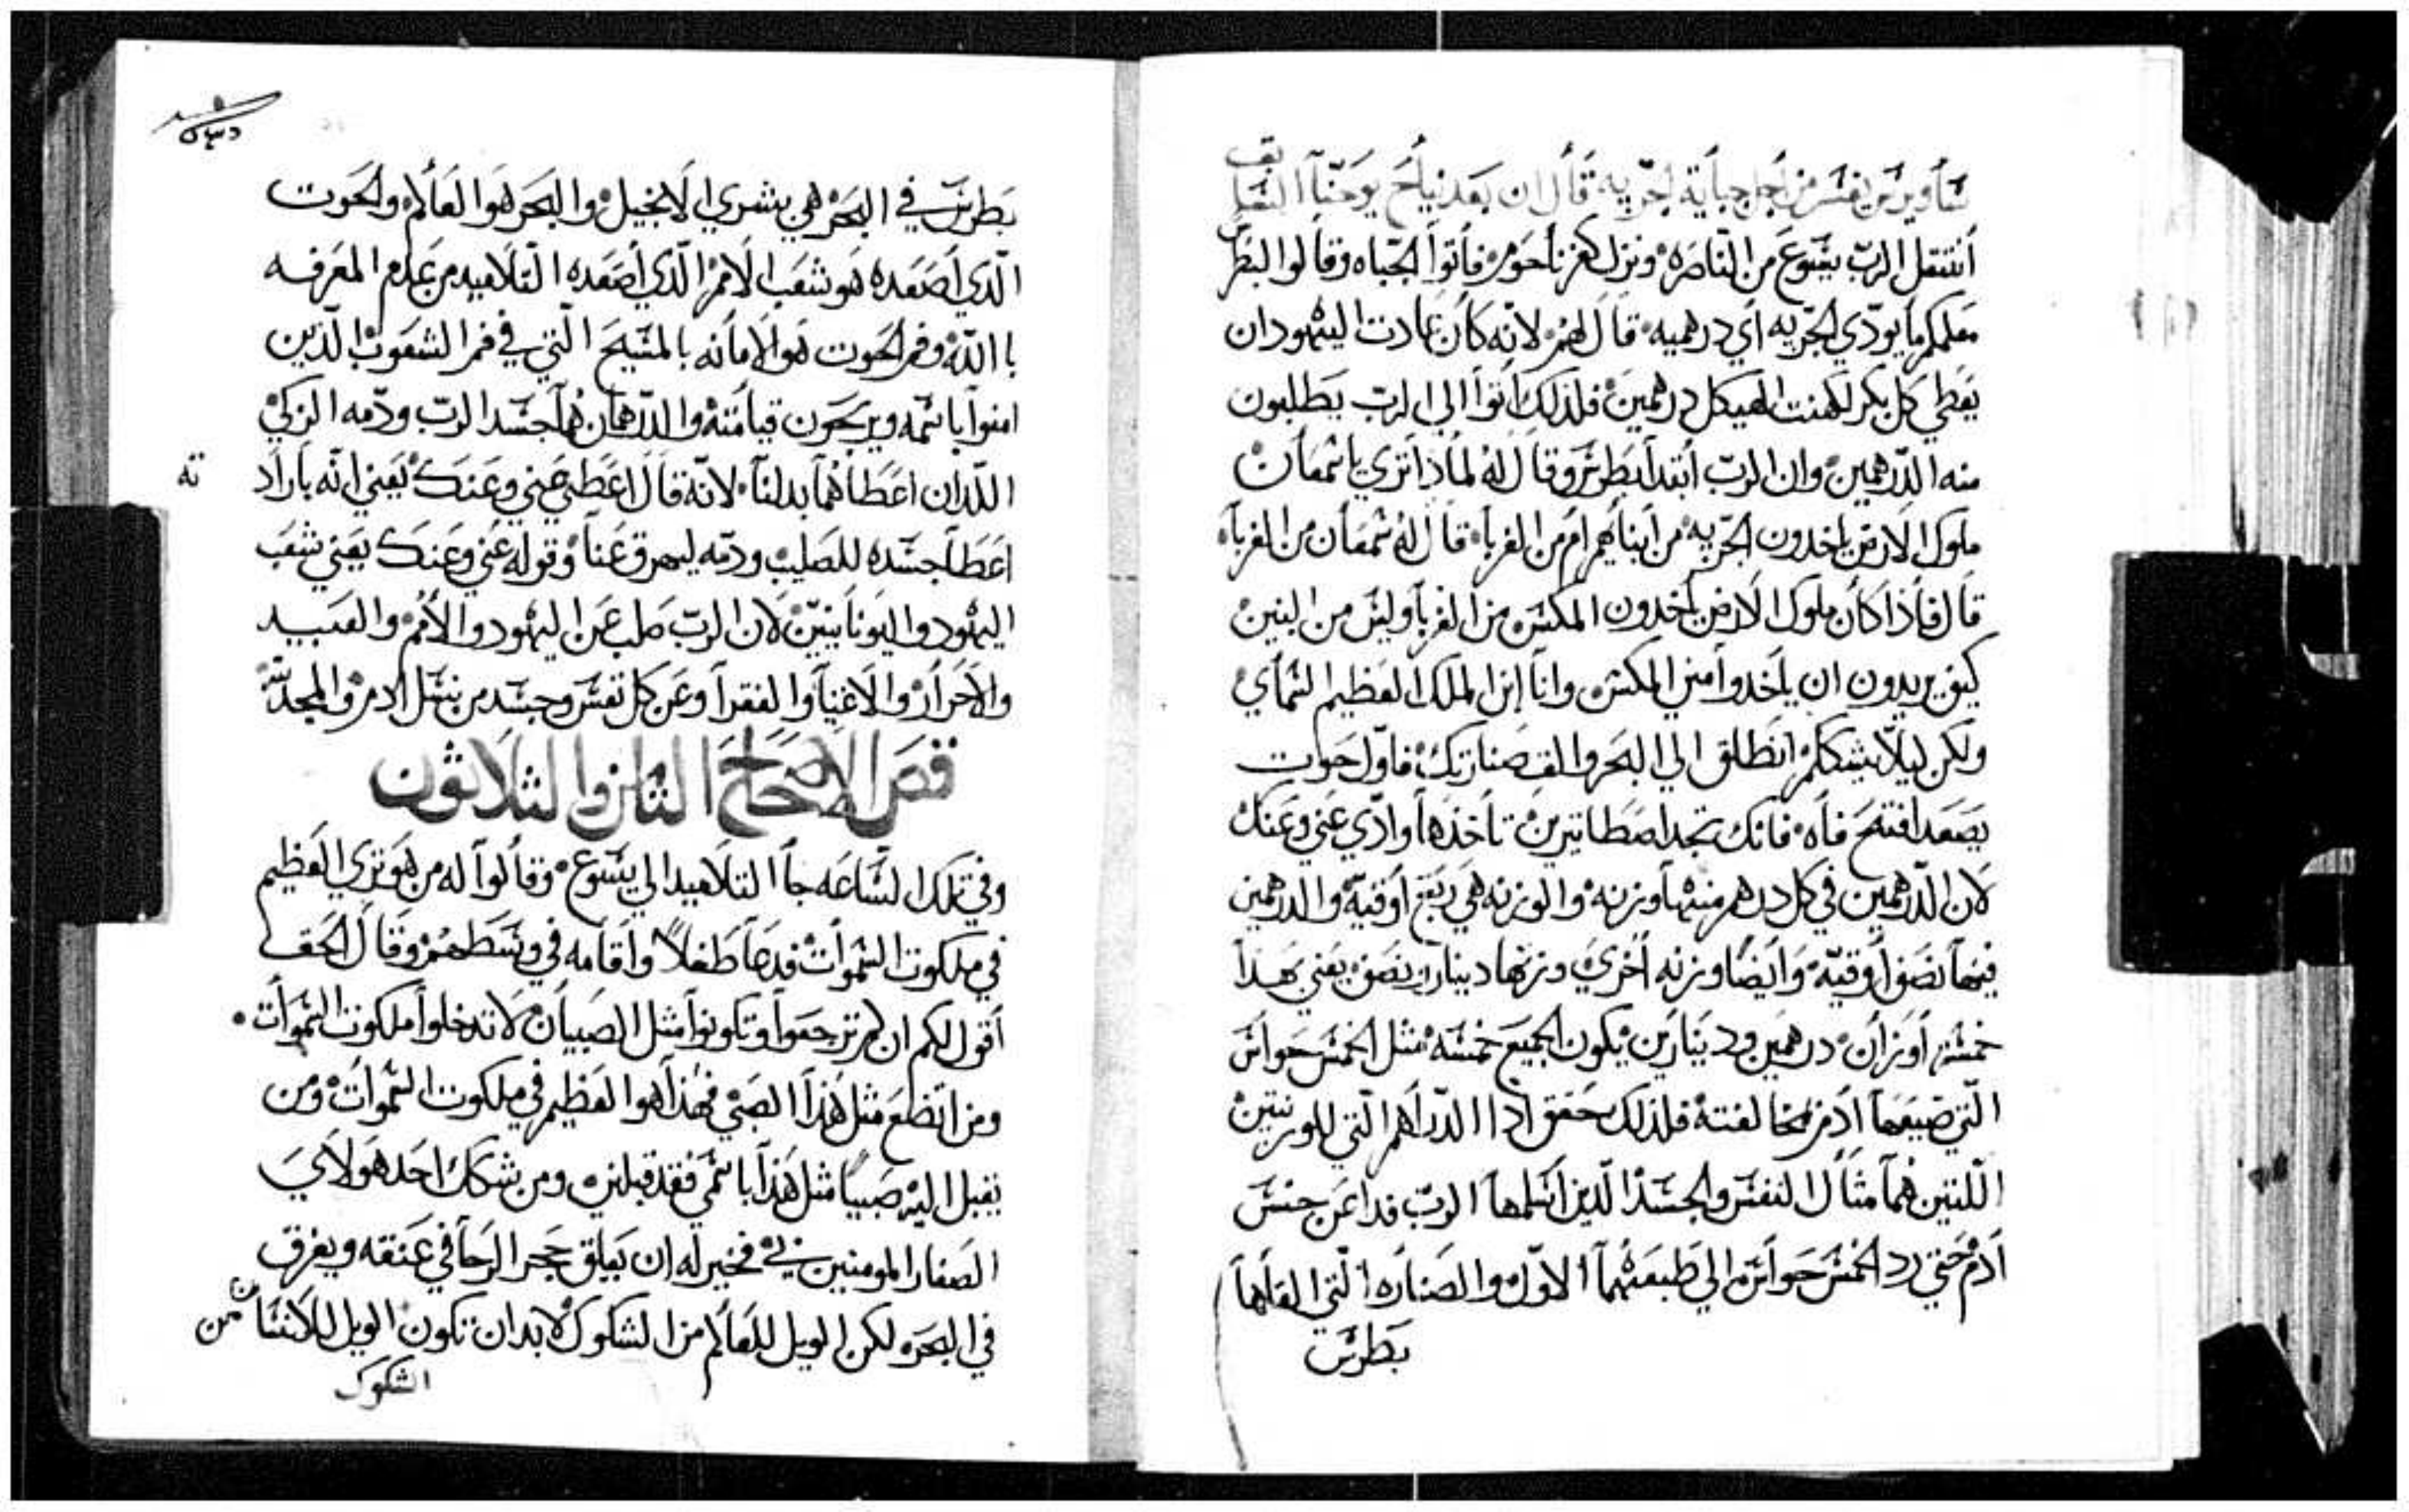 ساويرس يفسر من اجل جباية الجزيه قال ان بعد نياح يوحنا السابق
أنتقل الرب يسوع من الناصره ونزل كفرناحوم فأتوا الجباه وقالوا لبطرس
معلمكم ما يودي الجزيه أي درهميه قال لهم لانه كان عادت اليهود ان
يعطي كل بكر لكهنت الهيكل درهمين فلذلك اتوا الي الرب يطلبون
منه الدرهمين وان الرب أبتدا بطرس وقال له لماذا تري يا سمعان
ملوك الارض ياخدون الجزيه من أبنايهم ام من الغربا قال له سمعان من الغربا
قال فأذا كان ملوك الارض ياخدون المكس من الغربا وليس من البنين
كيف يريدون ان ياخدوا مني المكس وانا ابن الملك العظيم السمأي
ولكن ليلا نشككهم انطلق الي البحر والق صنارتك فأول حوت
يصعد افتح فاه فانك تجد اصطاتيرين تاخذها وادي عني وعنك
لان الدرهمين في كل درهم منهما وزنه والوزنه هي ربع أوقيه والدرهمين
فيهما نصف أوقيه وأيضا وزنه أخري وزنها دينار ونصف يعني بهدا
خمسة أوزان درهمين ودينارين يكون الجميع خمسه مثل الخمس حواس
التي ضيعها ادم بمخالفته فلذلك حقق ادا الدراهم التي للوزنتين
اللتين هما مثال النفس والجسد الذين أسلمها الرب فدا عن جنس
أدم حتي رد الخمس حواس الي طبعهما الاول والصناره التي القاها
بطرس
بطرس في البحر هي بشري الانجيل والبحر هوا العالم والحوت
الذي أصعده هو شعب الامم الذي أصعده التلاميد من عدم المعرفه
باالله وفم الحوت هو الامانه بالمسيح التي في فم الشعوب الذين
امنوا باسمه ويرجون قيامته والدرهمان هما جسد الرب ودمه الزكي
اللدان اعطاهما بدلنا لانه قال اعطي عني وعنك يعني انه بارادته
اعطا جسده للصليب ودمه ليهرق عنا وقوله عني وعنك يعني شعب
اليهود واليونانيين لان الرب صلب عن اليهود والأمم والعبيد
والاحرار والاغنيا والفقرا وعن كل نفس وجسد من نسل ادم والمجد لله
فص الاصحاح الثامن والثلاثون
وفي تلك الساعه جا التلاميد الي يسوع وقالوا له من هو تري العظيم
في ملكوت السموات فدعا طفلا واقامه في وسطهم وقال الحق
أقول لكم ان لم ترجعوا وتكونوا مثل الصبيان لا تدخلوا ملكوت السموات
ومن اتضع مثل هذا الصبي فهذا هو العظيم في ملكوت السموات ومن
يقبل اليه صبيا مثل هذا باسمي فقد قبلني ومن شكك احد هولاي
الصغار المومنين بي فخير له ان يعلق حجر الرحا في عنقه ويغرق
في البحره لكن الويل للعالم من الشكوك لابد ان تكون الويل للانسان من
الشكوك